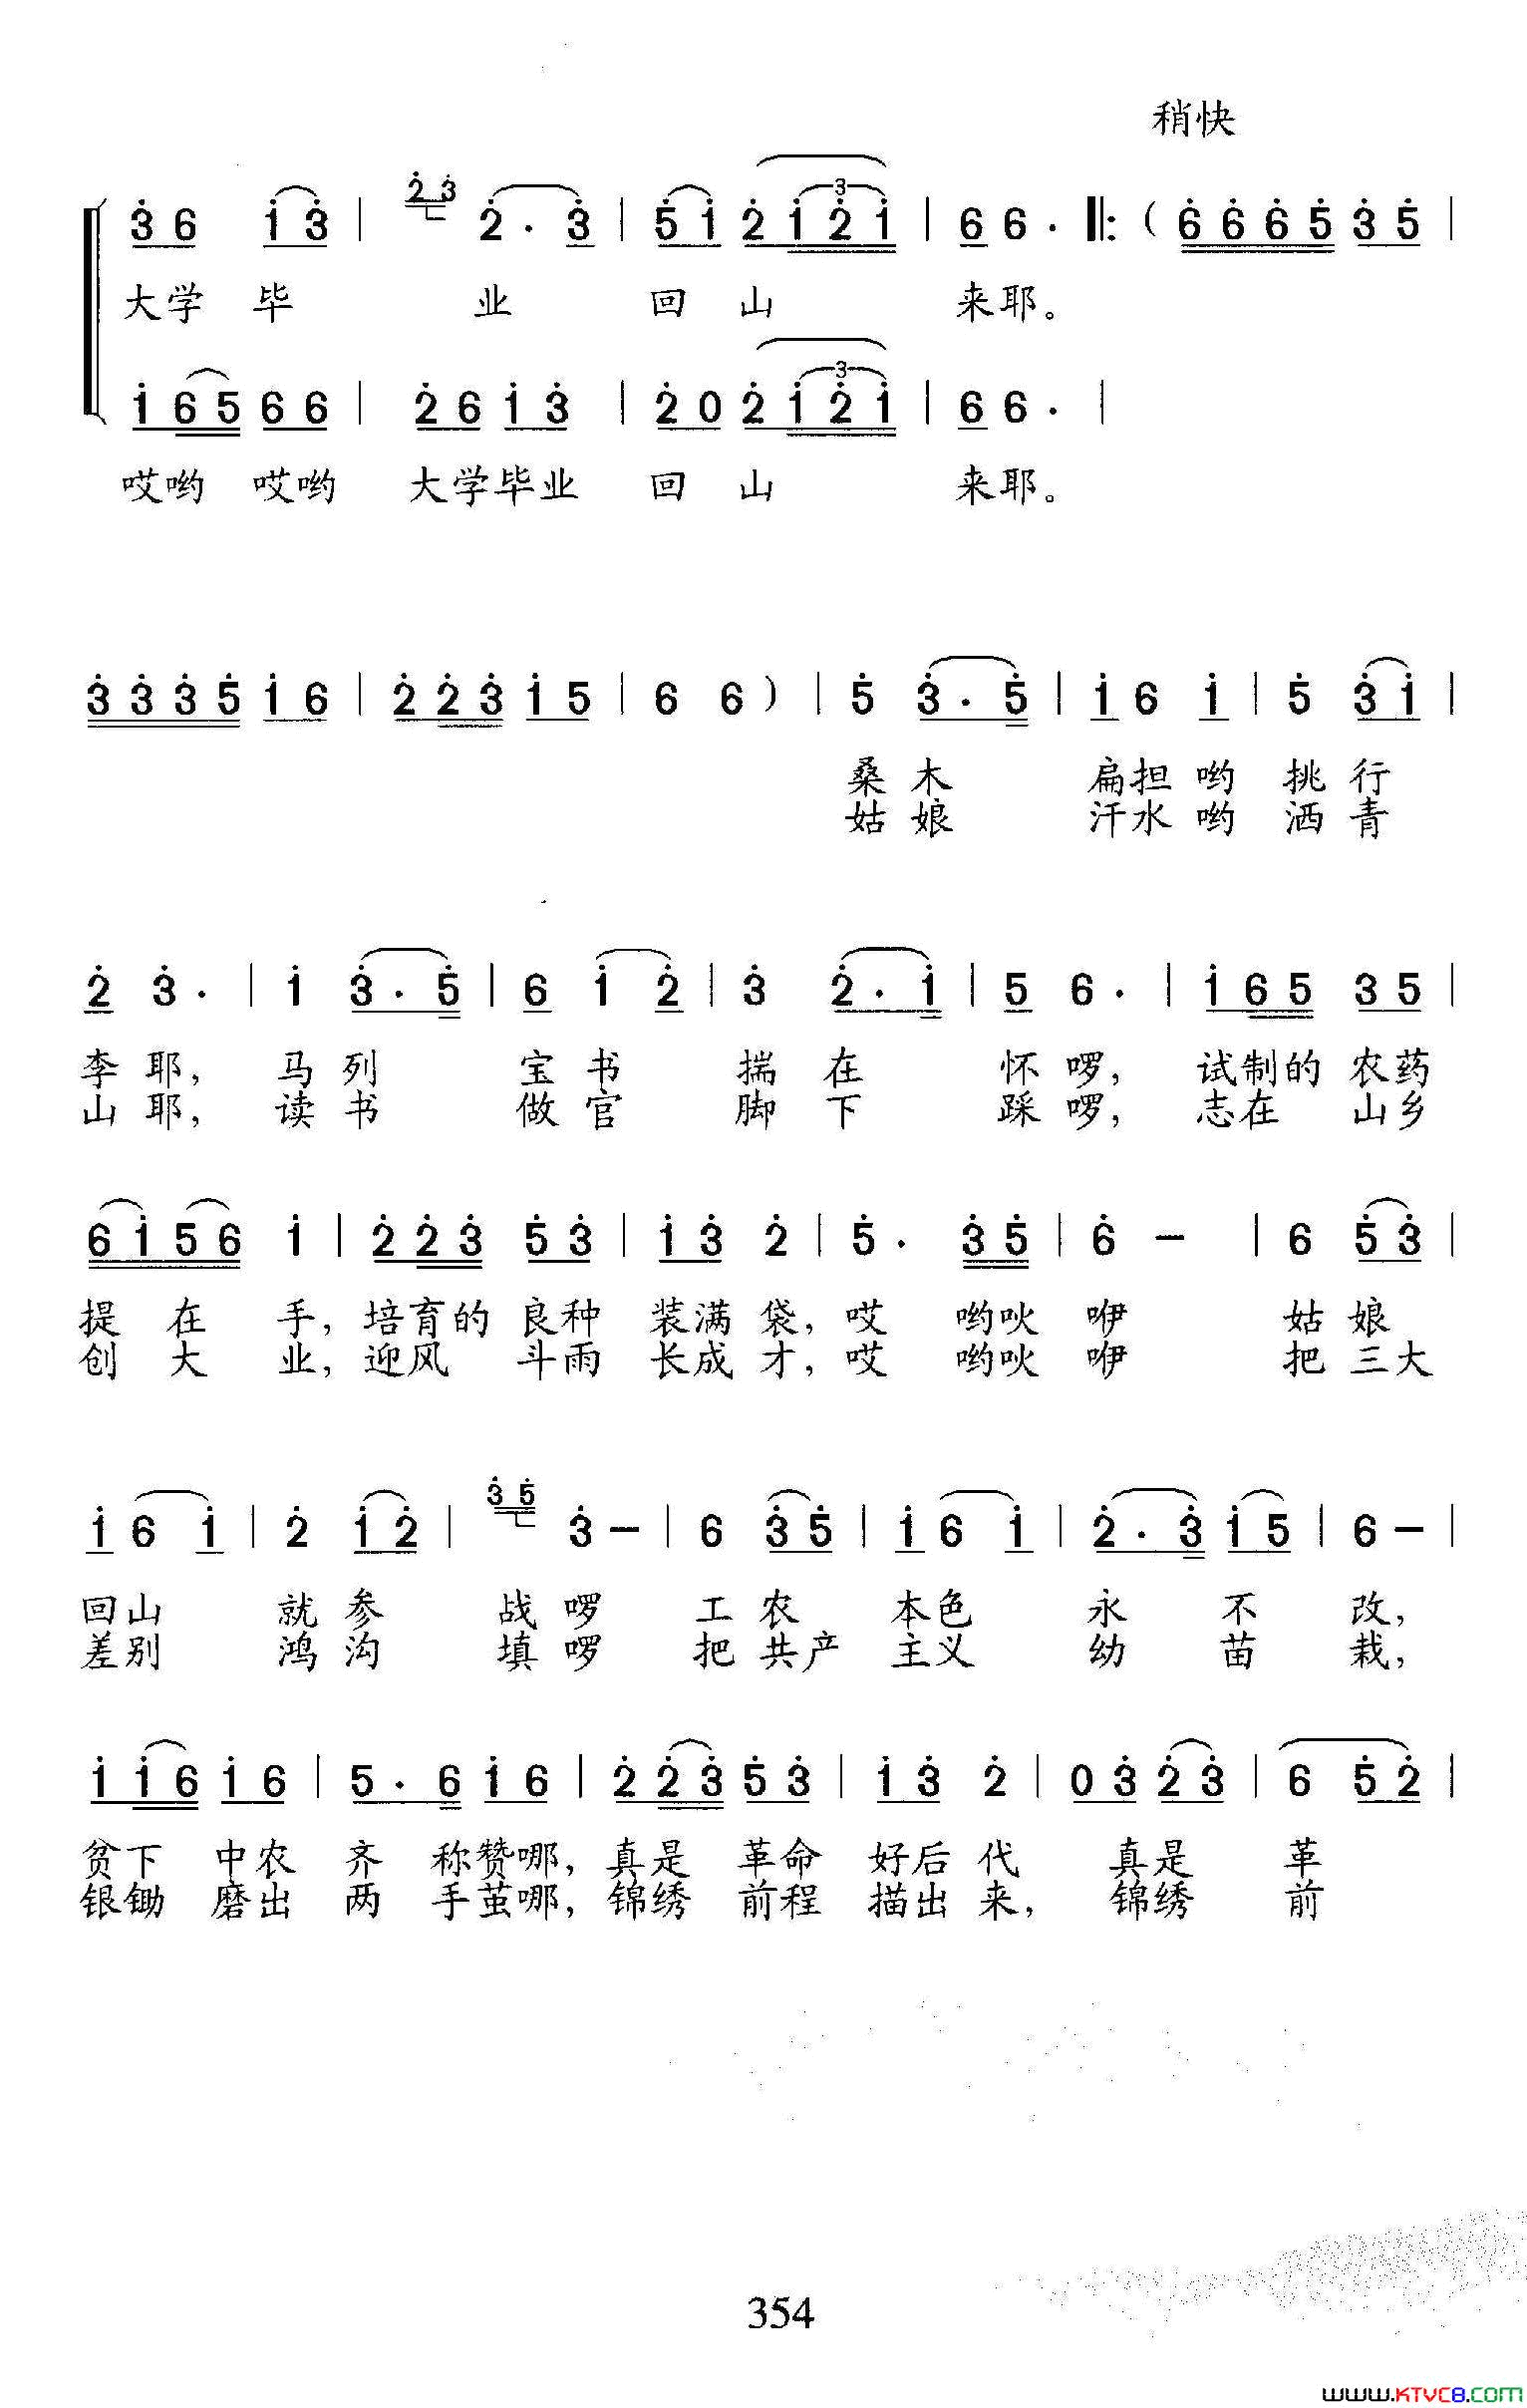 稍快
3 6 1 3 | 2 3 2 · 3 | 5 1 2 1 2 1 | 6 6 · ‖: ( 6 6 6 5 3 5 |
大学 毕 业 回 山 来耶。
1 6 5 6 6 | 2 6 1 3 | 2 0 2 1 2 1 | 6 6 · |
哎哟 哎哟 大学毕业 回 山 来耶。
3 3 3 5 1 6 | 2 2 3 1 5 | 6 6 ) | 5 3 · 5 | 1 6 1 | 5 3 1 |
桑木 扁担哟 挑行
姑娘 汗水哟 洒青
2 3 · | 1 3 · 5 | 6 1 2 | 3 2 · 1 | 5 6 · | 1 6 5 3 5 |
李耶, 马列 宝书 揣在 怀啰, 试制的 农药
山耶, 读书 做官 脚下 踩啰, 志在 山乡
6 1 5 6 1 | 2 2 3 5 3 | 1 3 2 | 5 · 3 5 | 6 – | 6 5 3 |
提在手, 培育的 良种 装满袋, 哎 哟吙 咿 姑娘
创大业, 迎风 斗雨 长成才, 哎 哟吙 咿 把三大
1 6 1 | 2 1 2 | 3 5 3 – | 6 3 5 | 1 6 1 | 2 · 3 1 5 | 6 – |
回山 就参 战啰 工农 本色 永不 改,
差别 鸿沟 填啰 把共产 主义 幼苗 栽,
1 1 6 1 6 | 5 · 6 1 6 | 2 2 3 5 3 | 1 3 2 | 0 3 2 3 | 6 5 2 |
贫下 中农 齐 称赞哪, 真是 革命 好后代 真是 革
银锄 磨出 两 手茧哪, 锦绣 前程 描出来, 锦绣 前
354
www.KTVC8.com